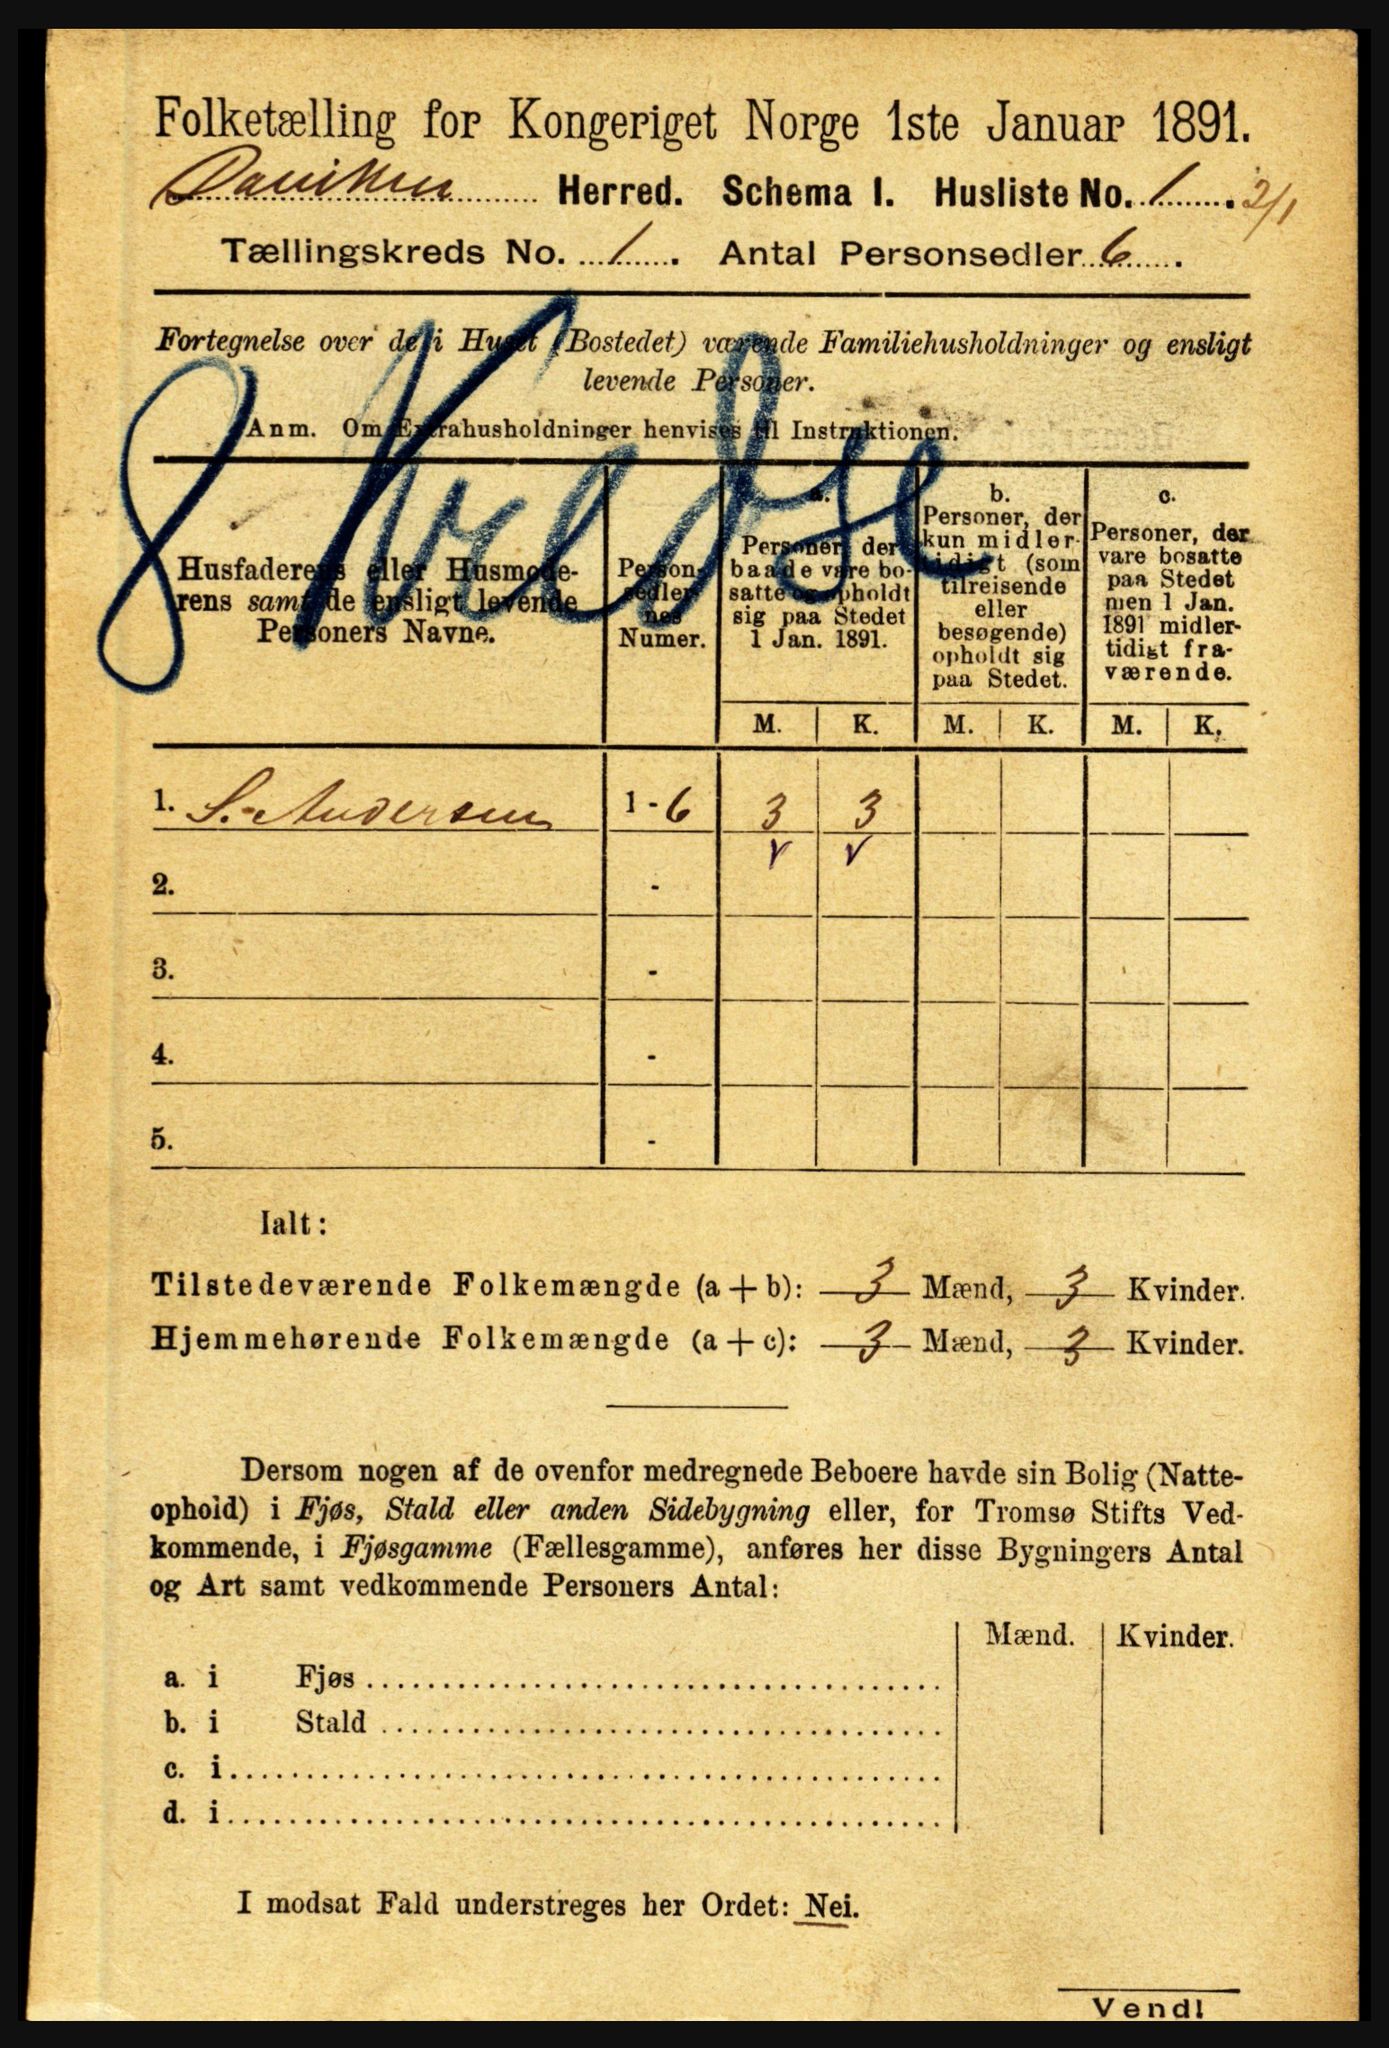 Folketælling for Kongeriget Norge 1ste Januar 1891.
Daviken Herred. Schema I. Husliste No. 1. 2/1
Tællingskreds No. 1. Antal Personsedler 6.
Fortegnelse over de i Huset (Bostedet) værende Familiehusholdninger og ensligt
levende Personer.
Anm. Om Extrahusholdninger henvises til Instruktionen.
8 Kredse
Husfaderens eller Husmode-
rens samt de ensligt levende
Personers Navne.
Person-
sedler-
nes
Numer.
a.
Personer, der
baade vare bo-
satte og opholdt
sig paa Stedet
1 Jan. 1891.
b.
Personer, der
kun midler-
tidigt (som
tilreisende
eller
besøgende)
opholdt sig
paa Stedet.
c.
Personer, der
vare bosatte
paa Stedet
men 1 Jan.
1891 midler-
tidigt fra-
værende.
M. K. M. K. M. K.
1. S. Andersen 1 - 6 3 3
2. -
3. -
4. -
5. -
Ialt:
Tilstedeværende Folkemængde (a + b): 3 Mænd, 3 Kvinder.
Hjemmehørende Folkemængde (a + c): 3 Mænd, 3 Kvinder.
Dersom nogen af de ovenfor medregnede Beboere havde sin Bolig (Natte-
ophold) i Fjøs, Stald eller anden Sidebygning eller, for Tromsø Stifts Ved-
kommende, i Fjøsgamme (Fællesgamme), anføres her disse Bygningers Antal
og Art samt vedkommende Personers Antal:
Mænd. Kvinder.
a. i Fjøs
b. i Stald
c. i
d. i
I modsat Fald understreges her Ordet: Nei.
Vend!